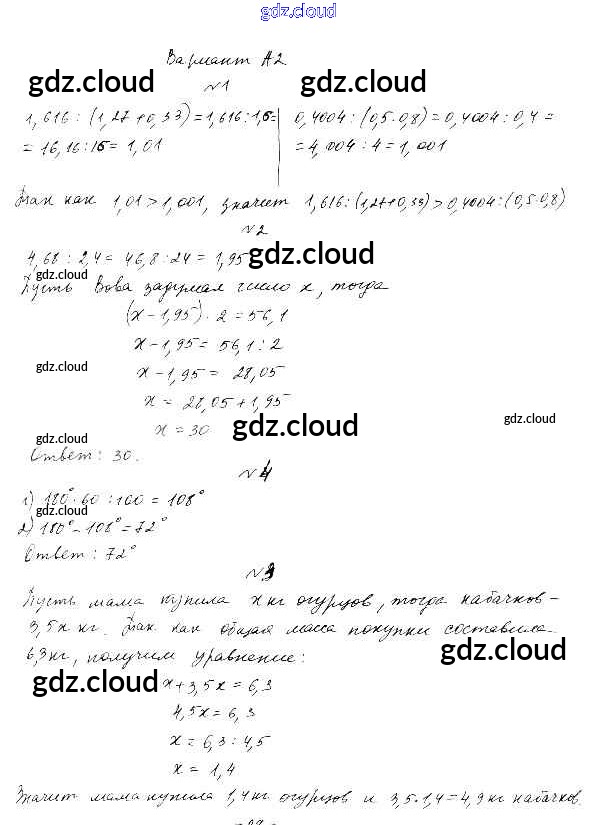 gdz.cloud
Вариант А2
gdz.cloud gdz.cloud
№1
1,616 : (1,27+0,33) = 1,616 : 1,6 =
= 16,16 : 16 = 1,01
0,4004 : (0,5·0,8) = 0,4004 : 0,4 =
= 4,004 : 4 = 1,001
Так как 1,01 > 1,001, значит 1,616 : (1,27+0,33) > 0,4004 : (0,5·0,8)
№2
4,68 : 2,4 = 46,8 : 24 = 1,95
gdz.cloud
gdz.cloud
Пусть Вова задумал число x, тогда
(x - 1,95) · 2 = 56,1
x - 1,95 = 56,1 : 2
gdz.cloud
x - 1,95 = 28,05
x = 28,05 + 1,95
x = 30
gdz.cloud
gdz.cloud
gdz.cloud
Ответ: 30.
№4
1) 180° · 60 : 100 = 108°
gdz.cloud
2) 180° - 108° = 72°
Ответ: 72°
№3
Пусть мама купила x кг огурцов, тогда кабачков -
3,5x кг. Так как общая масса покупки составила
6,3 кг, получим уравнение:
gdz.cloud
gdz.cloud
x + 3,5x = 6,3
4,5x = 6,3
x = 6,3 : 4,5
x = 1,4
Значит мама купила 1,4 кг огурцов и 3,5·1,4 = 4,9 кг кабачков.